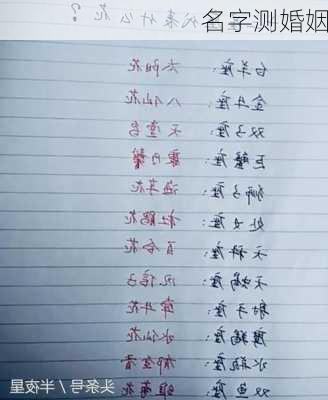 名字测婚姻
代表什么花？
白羊座：太阳花
金牛座：八仙花
双子座：天堂鸟
巨蟹座：康乃馨
狮子座：
处女座：杜鹃花
天秤座：百合花
天蝎座：风信子
射手座：牵牛花
魔羯座：水仙花
水瓶座：郁金香
双鱼座：
头条号/半夜星